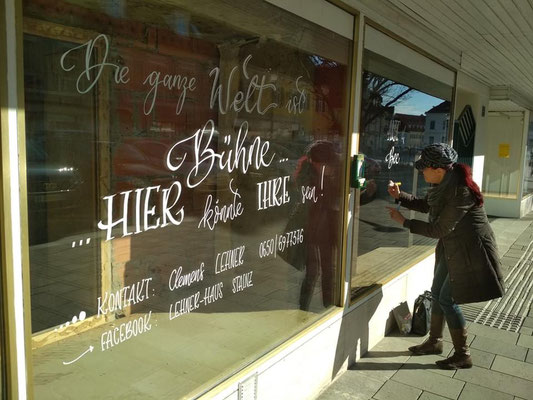 Die ganze Welt ist
Bühne...
...HIER könnte IHRE sein!
KONTAKT: Clemens LEHNER 0650/6977376
FACEBOOK: LEHNER-HAUS STAINZ